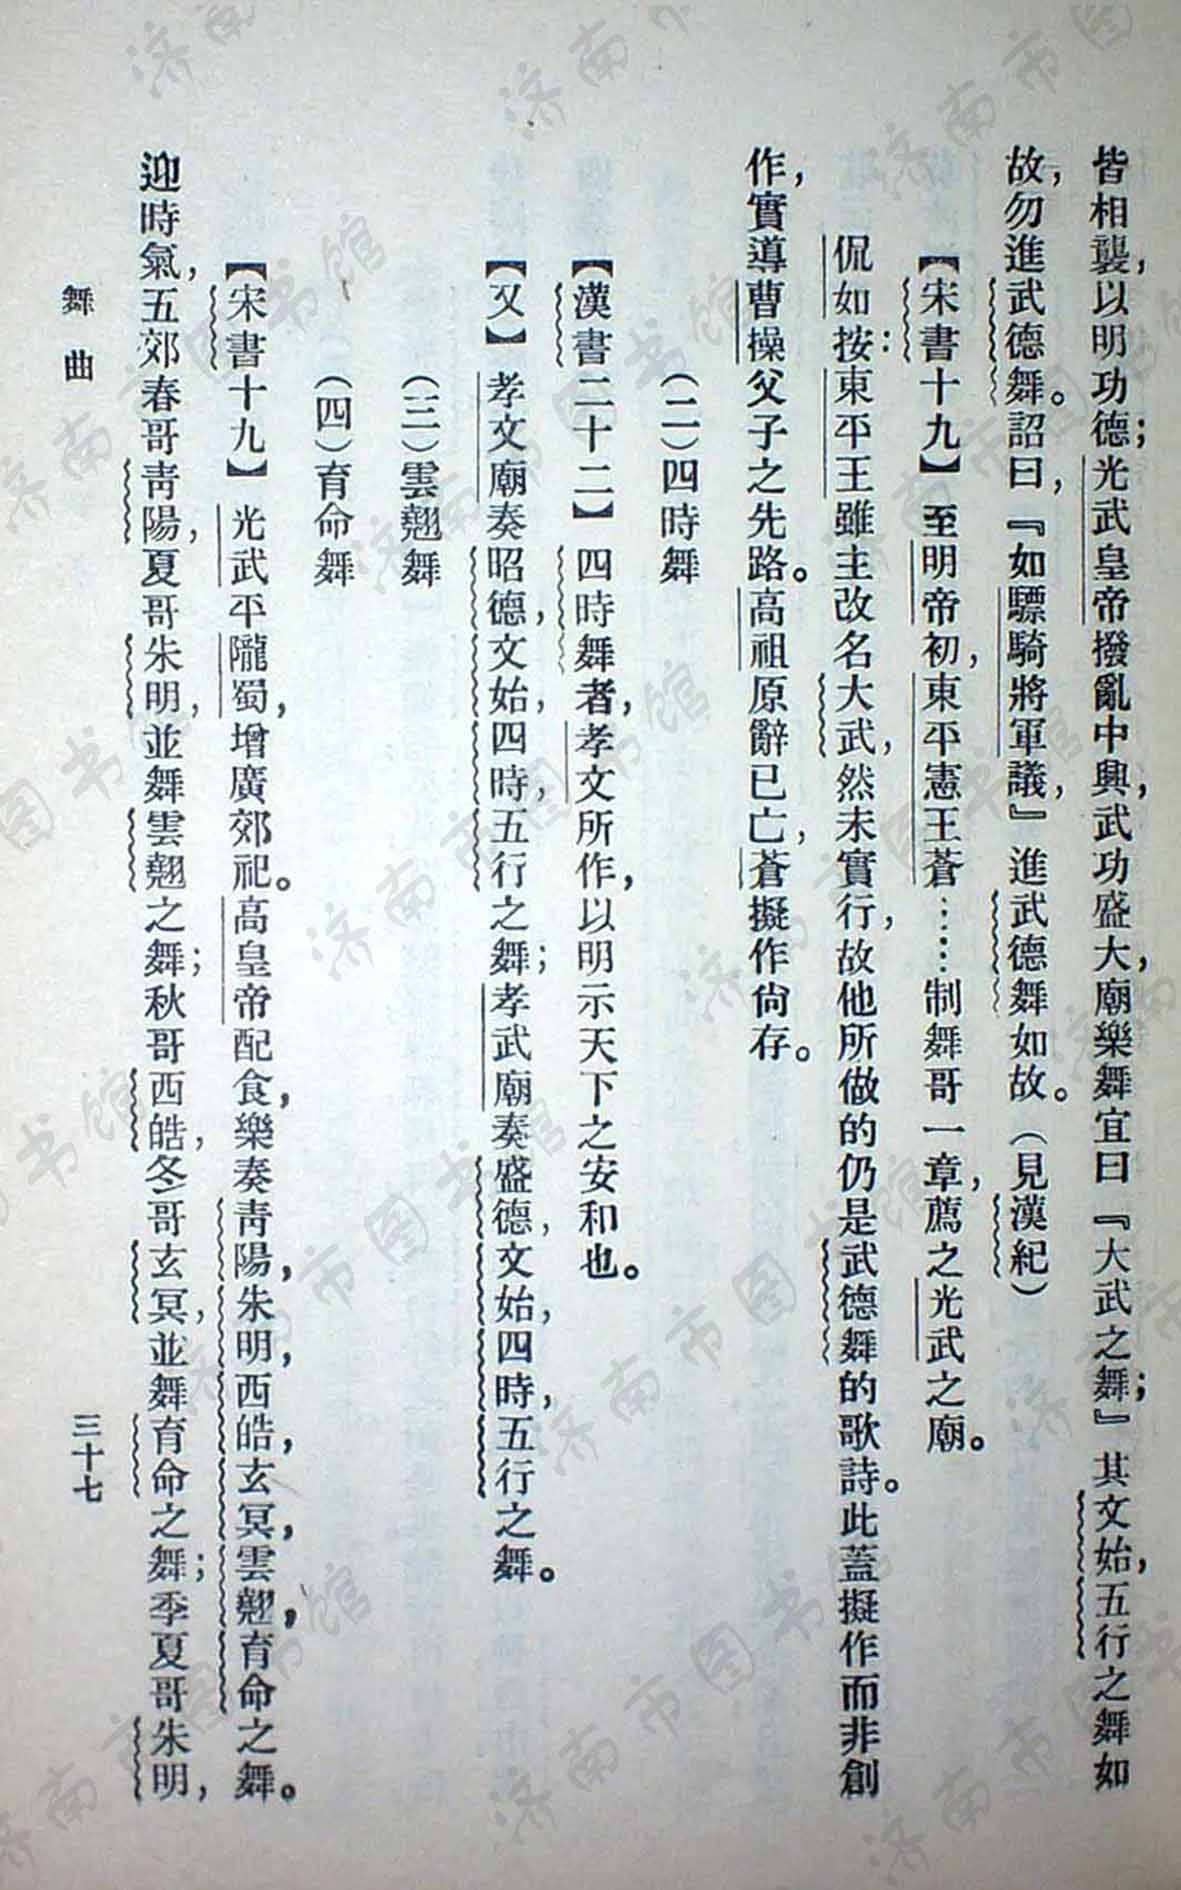 皆相襲，以明功德；光武皇帝撥亂中興，武功盛大，廟樂舞宜曰『大武之舞；』其文始，五行之舞如
故，勿進武德舞。詔曰，『如驃騎將軍議，』進武德舞如故。（見漢紀）
【宋書十九】至明帝初，東平憲王蒼……制舞哥一章，薦之光武之廟。
侃如按：東平王雖主改名大武，然未實行，故他所做的仍是武德舞的歌詩。此蓋擬作而非創
作，實導曹操父子之先路。高祖原辭已亡，蒼擬作尙存。
（二）四時舞
【漢書二十二】四時舞者，孝文所作，以明示天下之安和也。
【又】孝文廟奏昭德，文始，四時，五行之舞；孝武廟奏盛德，文始，四時，五行之舞。
（三）雲翹舞
（四）育命舞
【宋書十九】光武平隴蜀，增廣郊祀。高皇帝配食，樂奏靑陽，朱明，西皓，玄冥，雲翹，育命之舞。
迎時氣，五郊春哥靑陽，夏哥朱明，並舞雲翹之舞；秋哥西皓，冬哥玄冥，並舞育命之舞；季夏哥朱明，
舞曲
三十七
济南市图书馆